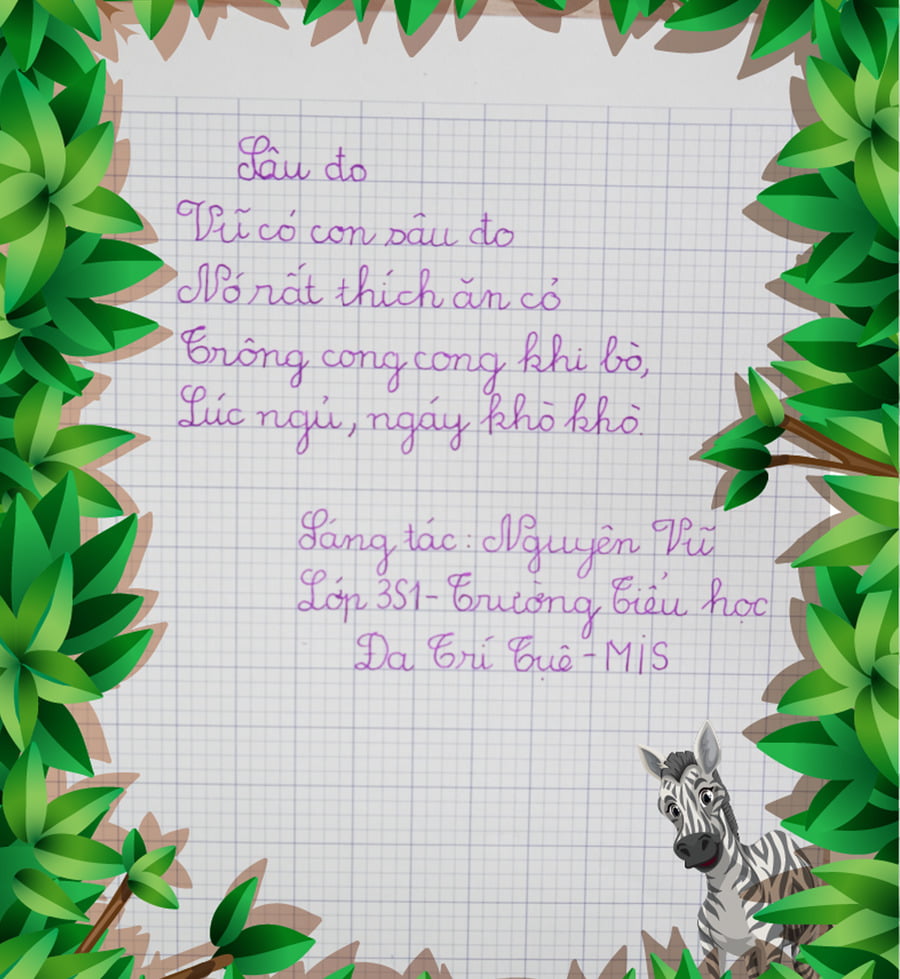 Sâu đo
Vũ có con sâu đo
Nó rất thích ăn cỏ
Trông cong cong khi bò,
Lúc ngủ, ngáy khò khò.
Sáng tác: Nguyên Vũ
Lớp 3S1- Trường Tiểu học
Đa Trí Tuệ - MIS